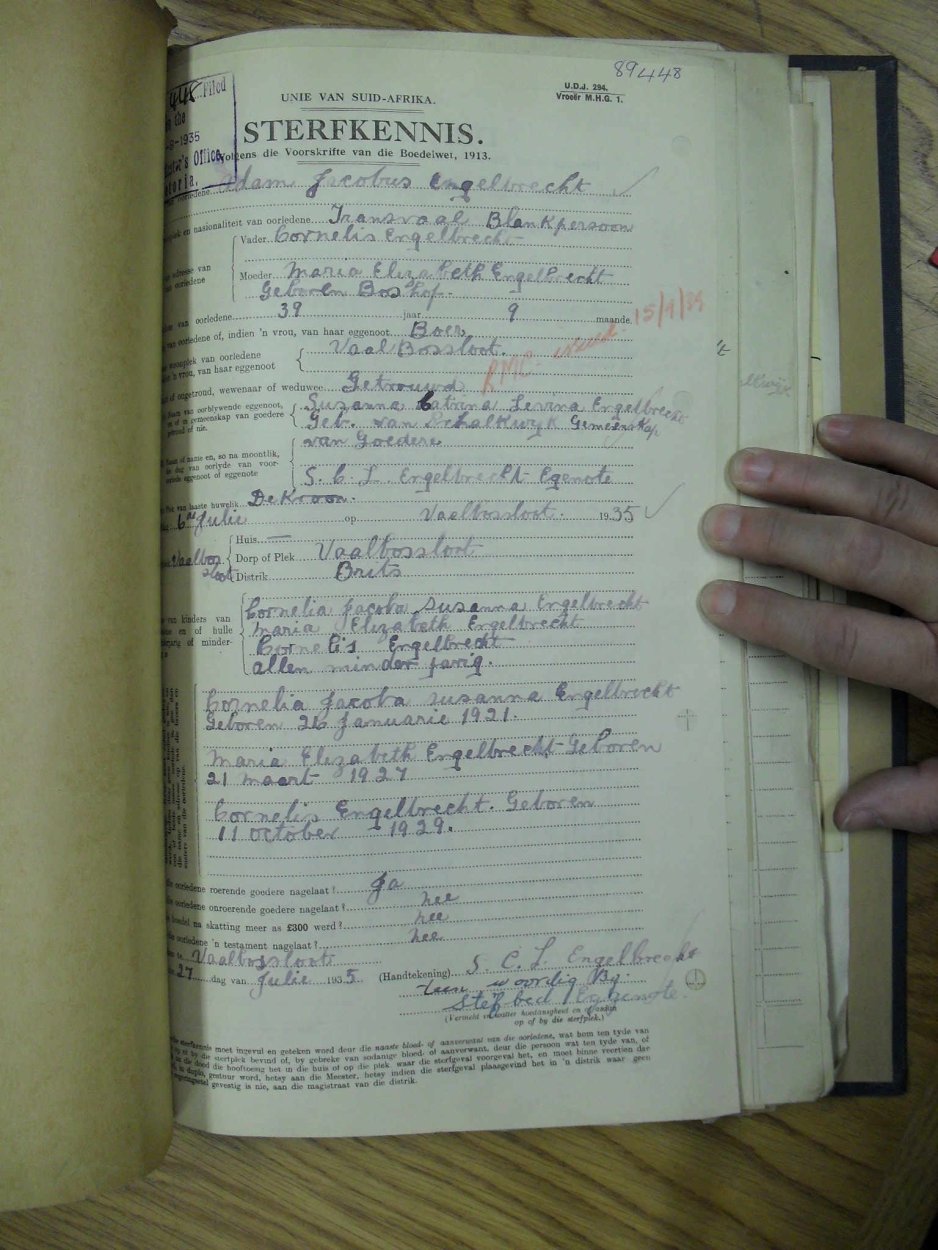 89448
U.D.J. 294.
Vroeër M.H.G. 1.
Filed
the
-8-1935
Office,
UNIE VAN SUID-AFRIKA.
STERFKENNIS.
Volgens die Voorskrifte van die Boedelwet, 1913.
oorledene Adam Jacobus Engelbrecht
en nasionaliteit van oorledene Transvaal Blankpersoon
Vader Cornelis Engelbrecht
adresse van oorledene
Moeder Maria Elizabeth Engelbrecht
Geboren Boshof.
van oorledene 39 jaar 9 maande
15/9/35
van oorledene of, indien 'n vrou, van haar eggenoot Boer
woonplek van oorledene
'n vrou, van haar eggenoot
Vaal Bossloot.
of ongetroud, wewenaar of weduwee Getrouwd
Naam van oorblywende eggenoot,
in gemeenskap van goedere
of nie.
Susanna Catrina Levina Engelbrecht
Geb. van Schalkwyk Gemeenskap
van Goedere
of name en, so na moontlik,
dag van oorlyde van voor-
eggenoot of eggenote
S. C. L. Engelbrecht Egenote
Plek van laaste huwelik De Kroon.
6de Julie op Vaalbossloot. 1935
Huis —
Vaalbos
sloot
Dorp of Plek Vaalbossloot
Distrik Brits
van kinders van
en of hulle
of minder-
Cornelia Jacoba Susanna Engelbrecht
Maria Elizabeth Engelbrecht
Cornelis Engelbrecht
allen minder jarig.
Cornelia Jacoba Susanna Engelbrecht
Geboren 26 Januarie 1921.
Maria Elizabeth Engelbrecht Geboren
21 Maart 1927
Cornelis Engelbrecht. Geboren
11 October 1929.
oorledene roerende goedere nagelaat? Ja
oorledene onroerende goedere nagelaat? nee
boedel na skatting meer as £300 werd? nee
oorledene 'n testament nagelaat? nee
te Vaalbossloot
27 dag van Julie 1935
(Handtekening) S. C. L. Engelbrecht
teen woordig By
Stef bed Eggenote
(Vermeld
op of by die sterfplek.)
sterfkennis moet ingevul en geteken word deur die naaste bloed- of aanverwant van die oorledene, wat hom ten tyde van
by die sterfplek bevind of, by gebreke van sodanige bloed- of aanverwant, deur die persoon wat ten tyde van, of
die dood die hooftoesig het in die huis of op die plek waar die sterfgeval voorgeval het, en moet binne veertien dae
in duplo, gestuur word, hetsy aan die Meester, hetsy indien die sterfgeval plaasgevind het in 'n distrik waar geen
gevestig is nie, aan die magistraat van die distrik.